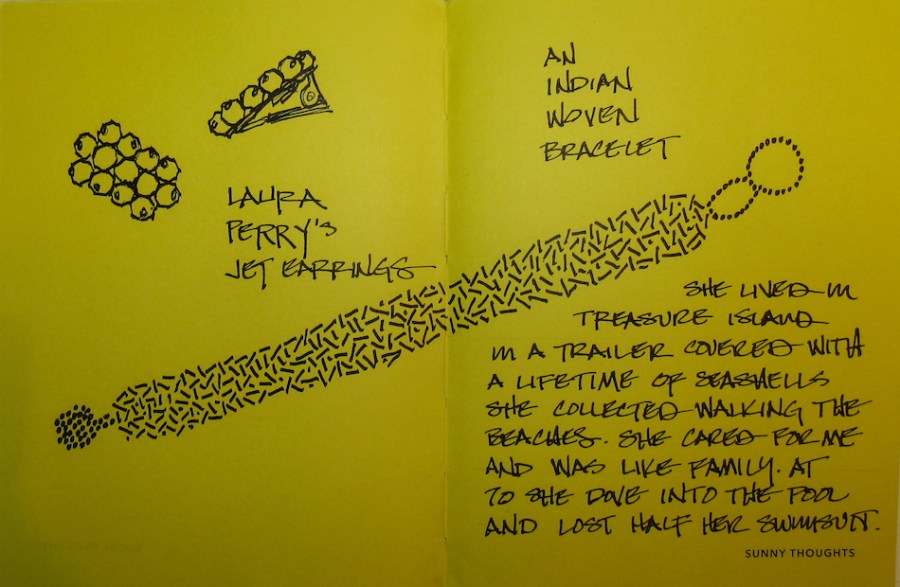 LAURA
PERRY'S
JET EARRINGS
AN
INDIAN
WOVEN
BRACELET
SHE LIVED IN
TREASURE ISLAND
IN A TRAILER COVERED WITH
A LIFETIME OF SEASHELLS
SHE COLLECTED WALKING THE
BEACHES. SHE CARED FOR ME
AND WAS LIKE FAMILY. AT
70 SHE DOVE INTO THE POOL
AND LOST HALF HER SWIMSUIT.
SUNNY THOUGHTS